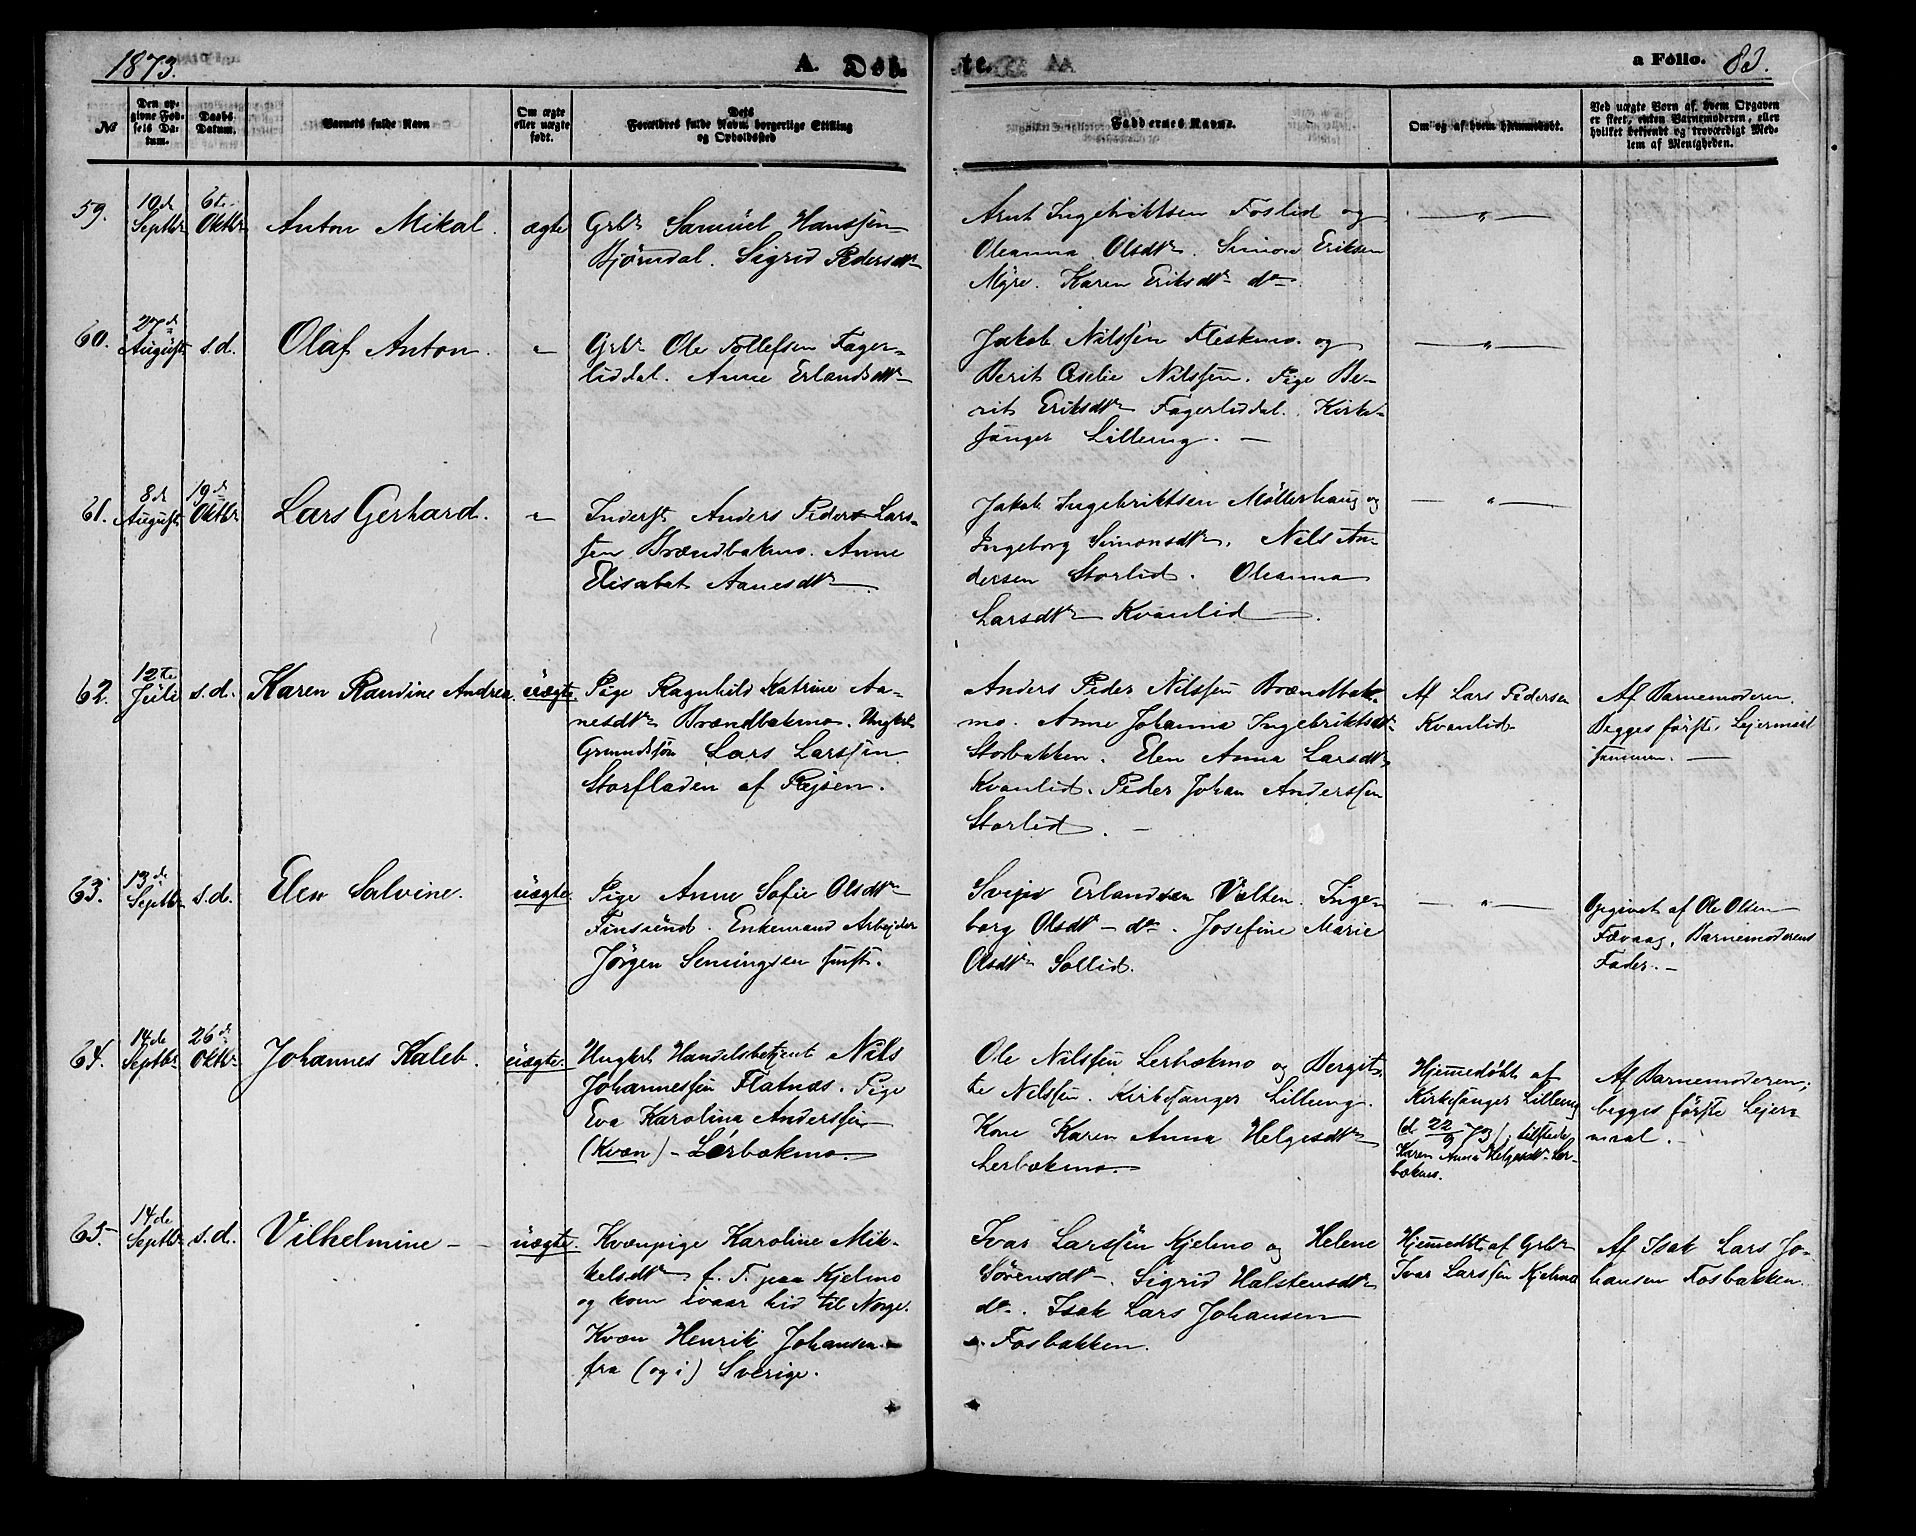 1873. A. Døb- te. a Folio. 83.
№
Den op-
givne Fød-
sels Da-
tum.
Daabs
Datum.
Barnets fulde Navn
Om ægte
eller uægte
født.
Dets
Forældres fulde Navn, borgerlige Stilling
og Opholdssted
Faddernes Navne.
Om og af hvem hjemmedøbt.
Ved uægte Børn af hvem Opgaven
er skeet, enten Barnemoderen, eller
hvilket bekjendt og troværdigt Med-
lem af Menigheden.
59.
19de
Septbr
6te
Oktbr
Anton Mikal.
ægte
Grbr Samuel Hanssen
Bjørndal. Sigrid Pedersdtr
Arnt Ingebriktsen Foslid og
Oleanna Olsdtr. Simon Eriksen
Myre. Karen Eriksdtr do
— " —
60.
27de
August
s.d.
Olaf Anton.
"
Grbr Ole Tollefsen Fager-
liddal. Anne Erlandsdtr
Jakob Nilssen Fleskmo. og
Berit Nilssen. Pige Be-
rit Eriksdtr Fagerliddal. Kirke-
sanger Lilleeng. —
— " —
61.
8de
August
19de
Oktbr
Lars Gerhard.
"
Inderst Anders Peder Lars-
sen Brændbakmo. Anne
Elisabet Aanesdtr
Jakob Ingebriktsen Møllerhaug og
Ingeborg Simonsdtr. Nils An-
dersen Storlid. Oleanna
Larsdtr Kvanlid.
— " —
62.
12te
Juli
s.d.
Karen Randine Andrea
uægte
Pige Ragnhild Katrine Aa-
nesdtr Brændbakmo. Ungkrl
Grundsøn Lars Larssen
Storfladen af Rejsen.
Anders Peder Nilssen Brændbak-
mo. Anne Johanna Ingebriktsdtr
Storbakken. Elen Anna Larsdtr
Kvanlid. Peder Johan Anderssen
Storlid. —
Af Lars Pedersen
Kvanlid
Af Barnemoderen.
Begges første Lejermaal
sammen. —
63.
13de
Septbr
s.d.
Elen Salvine.
uægte.
Pige Anne Sofie Olsdtr
Finsund. Enkemand Arbejder
Jørgen Semingsen
Erlandsen Valten. Inge-
borg Olsdtr do. Josefine Marie
Olsdtr Sollid.
— " —
Opgivet af Ole Olsen
Barnemoderens
Fader. —
64.
14de
Septbr
26de
Oktbr
Johannes Kaleb.
uægte.
Ungkrl Handelsbetjent Nils
Johannessen Flatnæs. Pige
Eva Karolina Anderssen
(Kvæn) - Lerbækmo.
Ole Nilssen Lerbækmo og Bergit-
te Nilssen. Kirkesanger Lilleeng.
Kone Karen Anna Helgesdtr
Lerbækmo.
Hjemmedøbt af
Kirkesanger Lilleeng
(d. 22/9 73), tilstede
Karen Anna Helgesdtr Ler-
bækmo.
Af Barnemoderen;
begges første Lejer-
maal. —
65.
14de
Septbr
s.d.
Vilhelmine —
uægte.
Kvænpige Karoline Mik-
kelsdtr f. T. paa Kjelmo
og kom ivaar hid til Norge.
Kvæn Henrik Johansen
fra (og i) Sverige.
Ivar Larssen Kjelmo og Helene
Sørensdtr. Sigrid Halstensdtr
do. Isak Lars Johansen
Fosbakken.
Hjemmedbt. af Grbr
Ivar Larssen Kjelmo
Af Isak Lars Jo-
hansen Fosbakken.